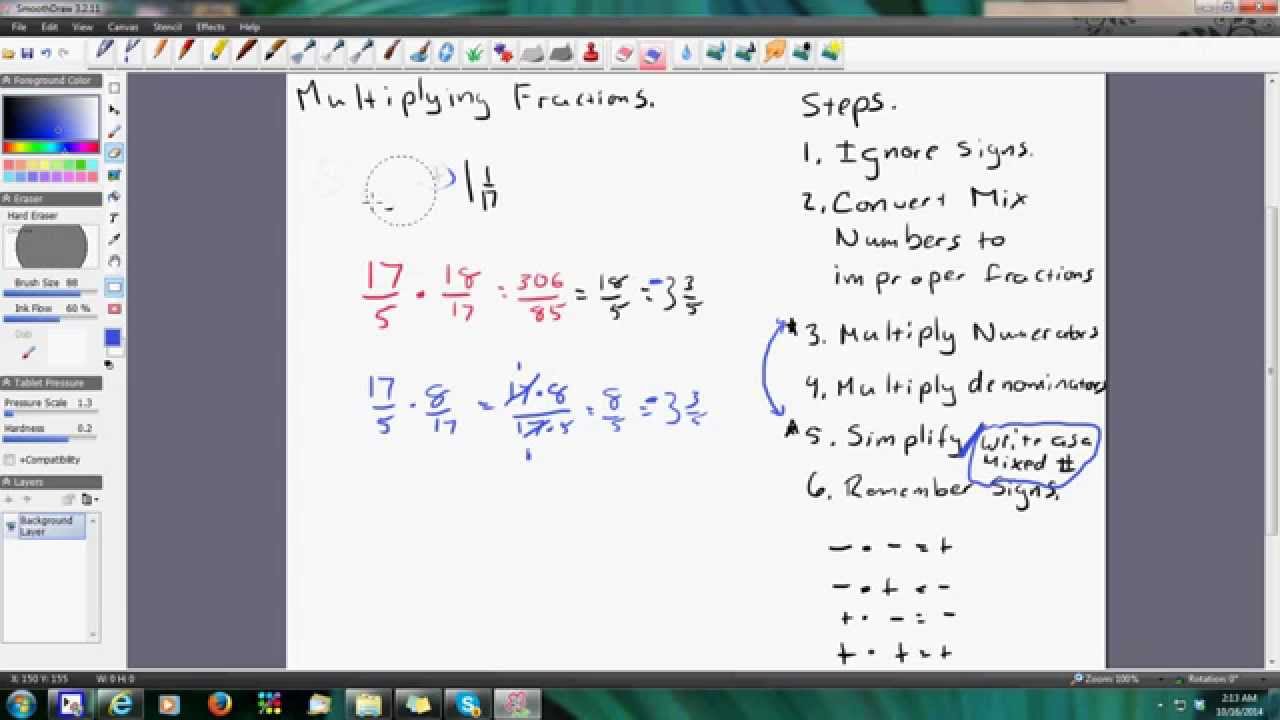 SmoothDraw 3.2.11
File Edit View Canvas Stencil Effects Help
Foreground Color
Eraser
Hard Eraser
Brush Size 88
Ink Flow 60 %
Dab
Tablet Pressure
Pressure Scale 1.3
Hardness 0.2
+Compatibility
Layers
Background
Layer
Multiplying Fractions.
1 1/17
17/5 · 18/17 = 306/85 = 18/5 = -3 3/5
17/5 · 8/17 = 17·8/17·5 = 8/5 = -3 3/5
1
1
Steps.
1. Ignore signs.
2. Convert Mix
Numbers to
improper fractions
* 3. Multiply Numerators
4. Multiply denominators
* 5. Simplify write as a
Mixed #
6. Remember signs.
- · - = +
- · + = -
+ · - = -
+ · + = +
X: 150 Y: 155 W: 0 H: 0
Zoom: 100%
Rotation: 0°
2:13 AM
10/16/2014